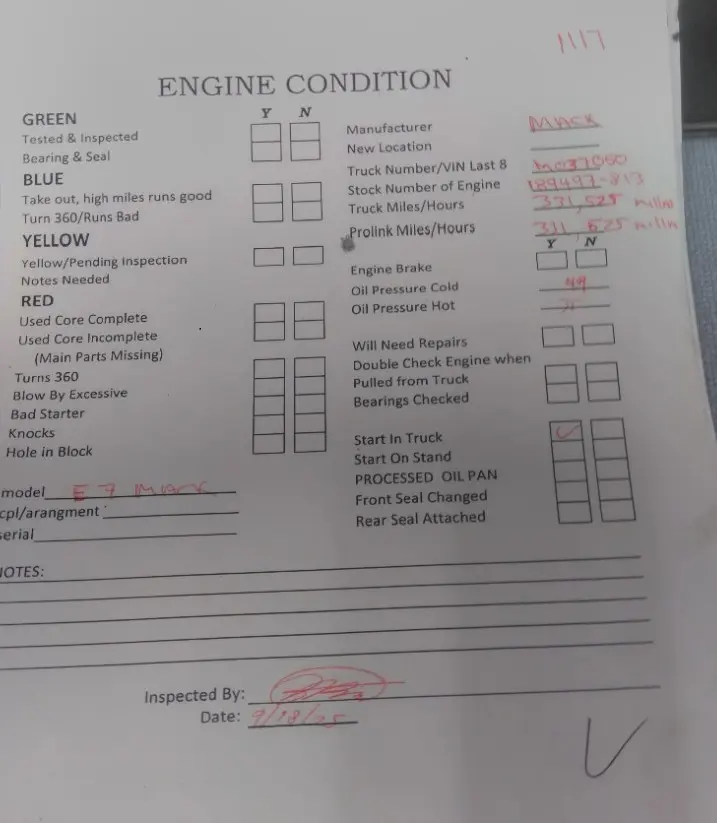 1117
ENGINE CONDITION
Y N
GREEN
Tested & Inspected
Bearing & Seal
BLUE
Take out, high miles runs good
Turn 360/Runs Bad
YELLOW
Yellow/Pending Inspection
Notes Needed
RED
Used Core Complete
Used Core Incomplete
(Main Parts Missing)
Turns 360
Blow By Excessive
Bad Starter
Knocks
Hole in Block
model E 7 MACK
cpl/arangment
serial
Manufacturer MACK
New Location
Truck Number/VIN Last 8
Stock Number of Engine 189497-813
Truck Miles/Hours 331,525
Prolink Miles/Hours
Y N
Engine Brake
Oil Pressure Cold 49
Oil Pressure Hot
Will Need Repairs
Double Check Engine when
Pulled from Truck
Bearings Checked
Start In Truck
Start On Stand
PROCESSED OIL PAN
Front Seal Changed
Rear Seal Attached
NOTES:
Inspected By:
Date: 9/18/25